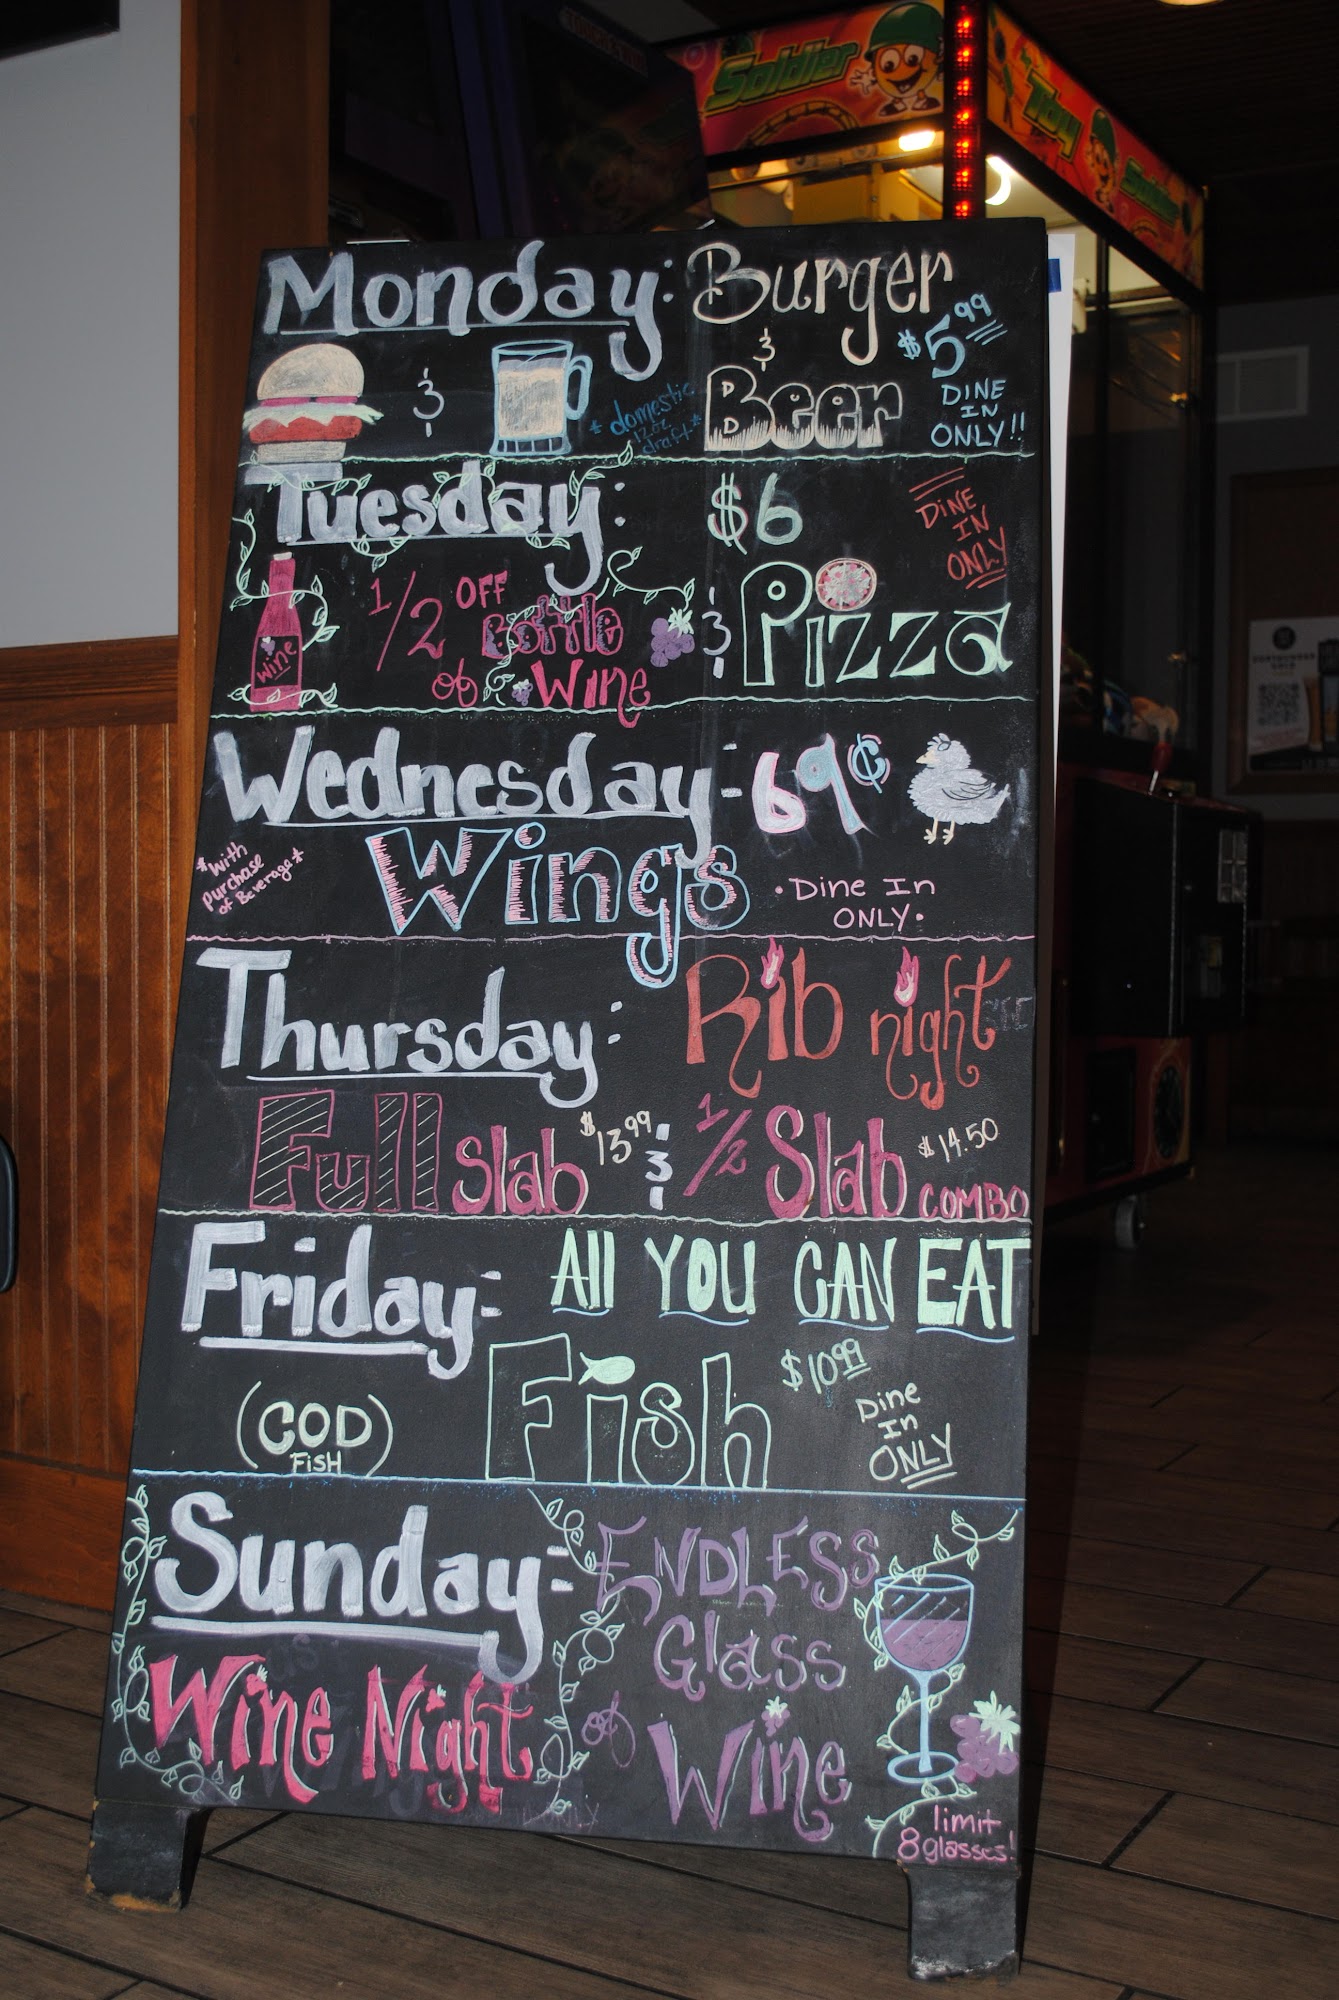 Soldier
Toy
Soldier
Monday: Burger
&
Beer
$5.99
DINE
IN
ONLY!!
&
*domestic
12oz
draft*
Tuesday:
$6
Pizza
DINE
IN
ONLY
Wine
1/2 OFF
Bottle
of Wine
&
Wednesday: 69¢
Wings
*with
purchase
of Beverage*
•Dine In
ONLY•
Thursday: Rib night
Full Slab $13.99 & 1/2 Slab $14.50
COMBO
Friday: All YOU CAN EAT
Fish $10.99
(COD
FISH)
Dine
In
ONLY
Sunday: ENDLESS
Glass
of Wine
Wine Night
limit
8 glasses!